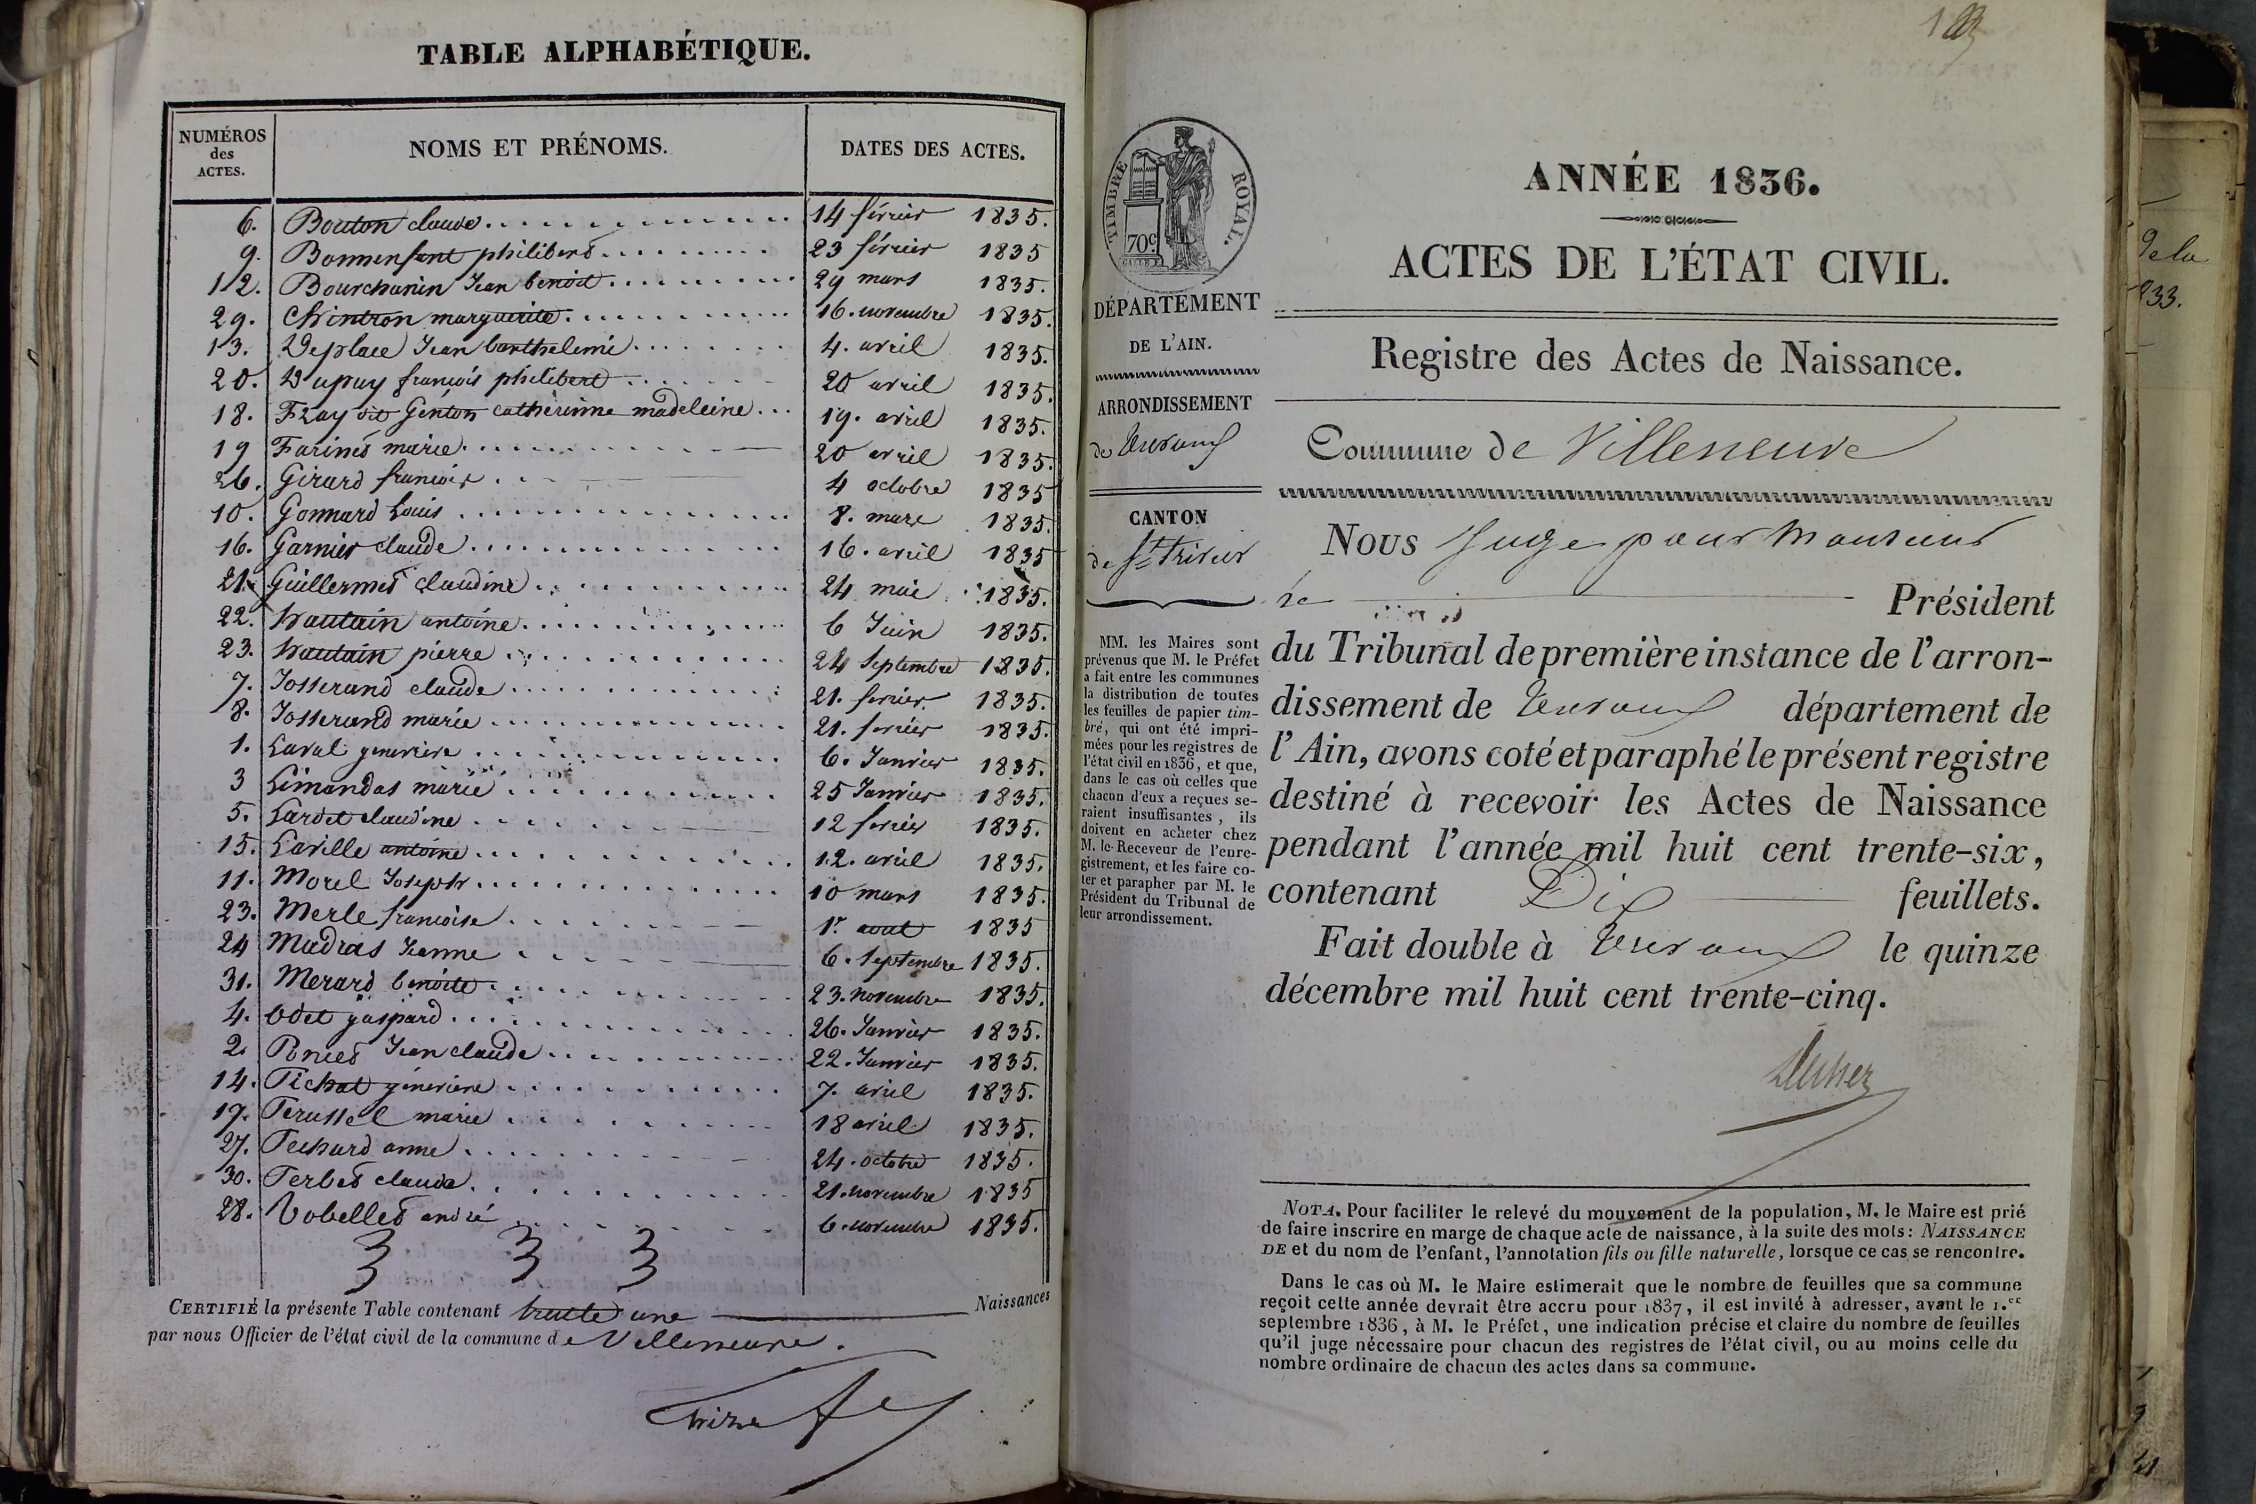 TABLE ALPHABÉTIQUE.
NUMÉROS des ACTES.
NOMS ET PRÉNOMS.
DATES DES ACTES.
6. Bouton claude 14 février 1835.
9. Bonnenfant philibert 23 février 1835
12. Bourchanin Jean benoit 29 mars 1835.
29. Chintron marguerite 16. novembre 1835.
13. Deplace Jean barthelemi 4. avril 1835.
20. Dupuy françois philibert 20 avril 1835.
18. Fray dit Genton catherinne madeleine 19. avril 1835.
19 Farines marie 20 avril 1835.
26. Girard françois 4 octobre 1835
10. Gonnard Louis 8. mars 1835.
16. Garnier claude 16. avril 1835
21. Guillermet claudine 24 mai 1835.
22. hautain antoine 6 Juin 1835.
23. hautain pierre 24 Septembre 1835.
7. Josserand claude 21. février 1835.
8. Josserand marie 21. février 1835.
1. Laval genevieve 6. Janvier 1835.
3 Limandas marie 25 Janvier 1835.
5. Lardet claudine 12 février 1835.
15. Laville antoine 12. avril 1835.
11. Morel Joseph 10 mars 1835.
23. Merle françoise 1r. aout 1835
24 Madras Jeanne 6. Septembre 1835.
31. Merard benoite 23. novembre 1835.
4. Odet gaspard 26. Janvier 1835.
2. Poncet Jean claude 22. Janvier 1835.
14. Pichat génevieve 7. avril 1835.
17. Perussel marie 18 avril 1835.
27. Pechard anne 24. octobre 1835.
30. Perbet claude 21. novembre 1835
28. Vobellet andré 6. novembre 1835.
CERTIFIÉ la présente Table contenant trente une Naissances
par nous Officier de l'état civil de la commune de Villeneuve.
TIMBRE ROYAL.
70c.
DÉPARTEMENT
DE L'AIN.
ARRONDISSEMENT
de Trévoux
CANTON
de St Trivier
MM. les Maires sont
prévenus que M. le Préfet
a fait entre les communes
la distribution de toutes
les feuilles de papier tim-
bré, qui ont été impri-
mées pour les registres de
l'état civil en 1836, et que,
dans le cas où celles que
chacun d'eux a reçues se-
raient insuffisantes, ils
doivent en acheter chez
M. le Receveur de l'enre-
gistrement, et les faire co-
ter et parapher par M. le
Président du Tribunal de
leur arrondissement.
ANNÉE 1836.
ACTES DE L'ÉTAT CIVIL.
Registre des Actes de Naissance.
Commune de Villeneuve
Nous Juge pour Monsieur
le Président
du Tribunal de première instance de l'arron-
dissement de Trévoux département de
l'Ain, avons coté et paraphé le présent registre
destiné à recevoir les Actes de Naissance
pendant l'année mil huit cent trente-six,
contenant Dix feuillets.
Fait double à Trévoux le quinze
décembre mil huit cent trente-cinq.
NOTA. Pour faciliter le relevé du mouvement de la population, M. le Maire est prié
de faire inscrire en marge de chaque acte de naissance, à la suite des mots: NAISSANCE
DE et du nom de l'enfant, l'annotation fils ou fille naturelle, lorsque ce cas se rencontre.
Dans le cas où M. le Maire estimerait que le nombre de feuilles que sa commune
reçoit cette année devrait être accru pour 1837, il est invité à adresser, avant le 1.er
septembre 1836, à M. le Préfet, une indication précise et claire du nombre de feuilles
qu'il juge nécessaire pour chacun des registres de l'état civil, ou au moins celle du
nombre ordinaire de chacun des actes dans sa commune.
de la
833.